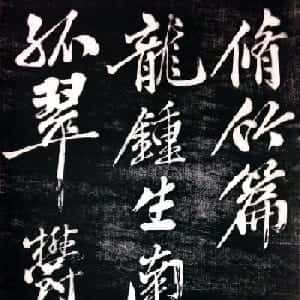 脩竹篇
龍鍾生南
孤翠鬱